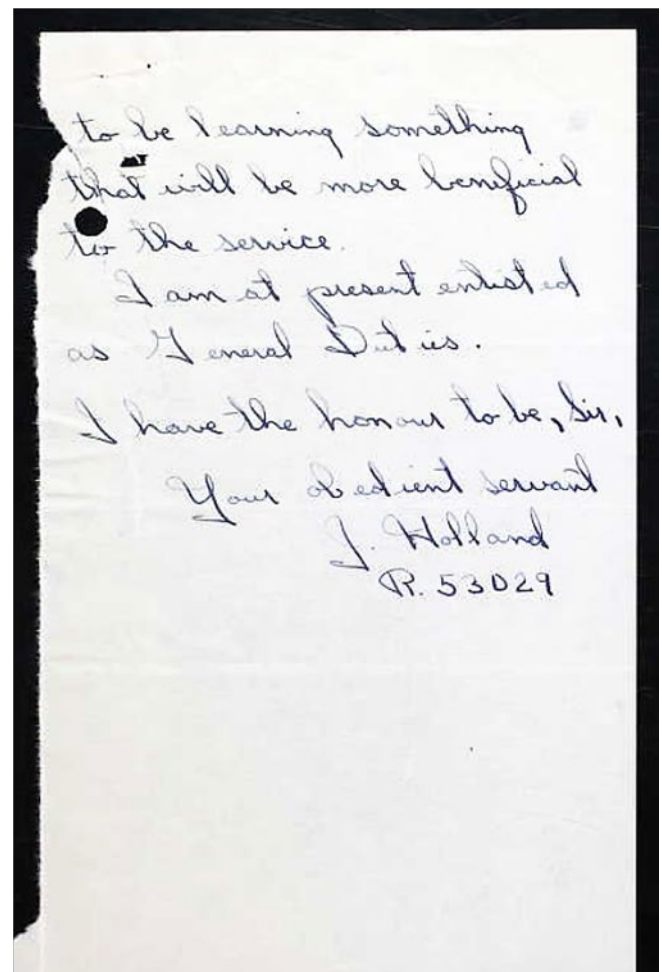 to be learning something
that will be more beneficial
to the service.
I am at present enlisted
as General Duties.
I have the honour to be, Sir,
Your obedient servant
J. Holland
R. 53029